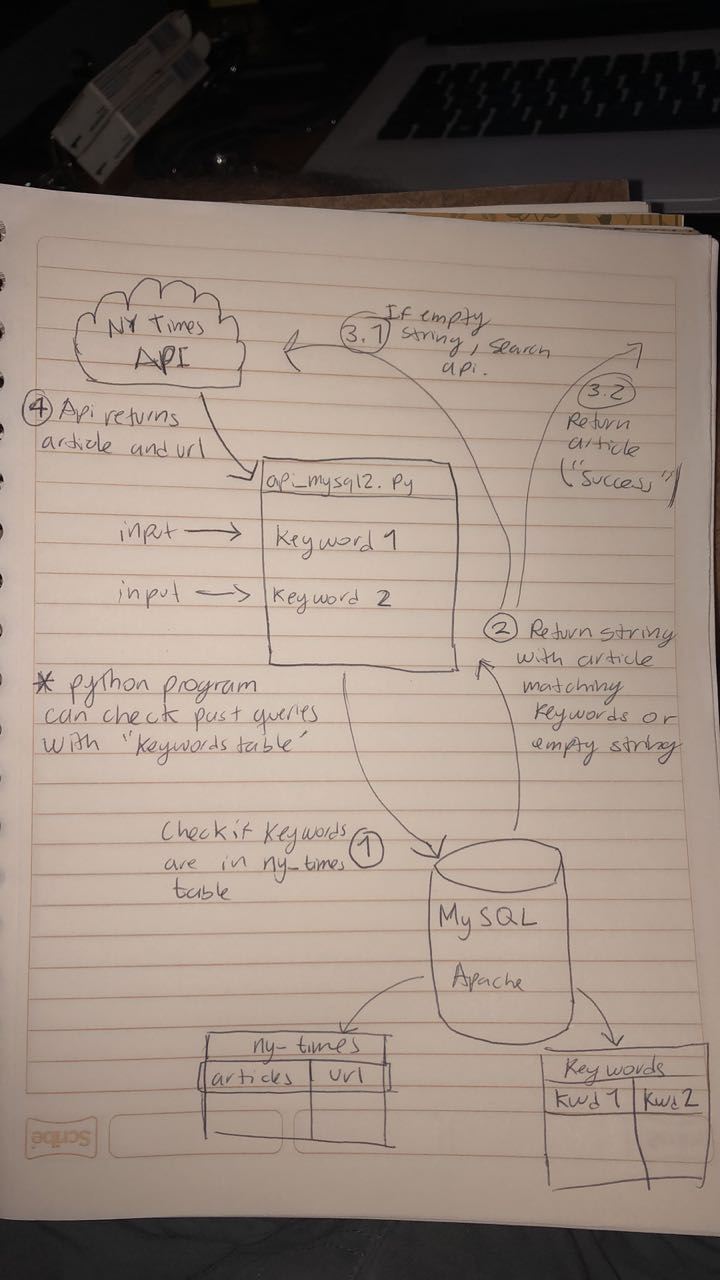 NY Times
API
3.1
If empty
string, search
api.
3.2
Return
article
("Success")
4 Api returns
article and url
api_mysql2.py
input → Keyword 1
input → Keyword 2
2 Return string
with article
matching
keywords or
empty string
* python program
can check past queries
with "keywords table"
Check if keywords
are in ny-times
table
1
MySQL
Apache
ny-times
articles url
Keywords
kwd 1 kwd 2
Scribe